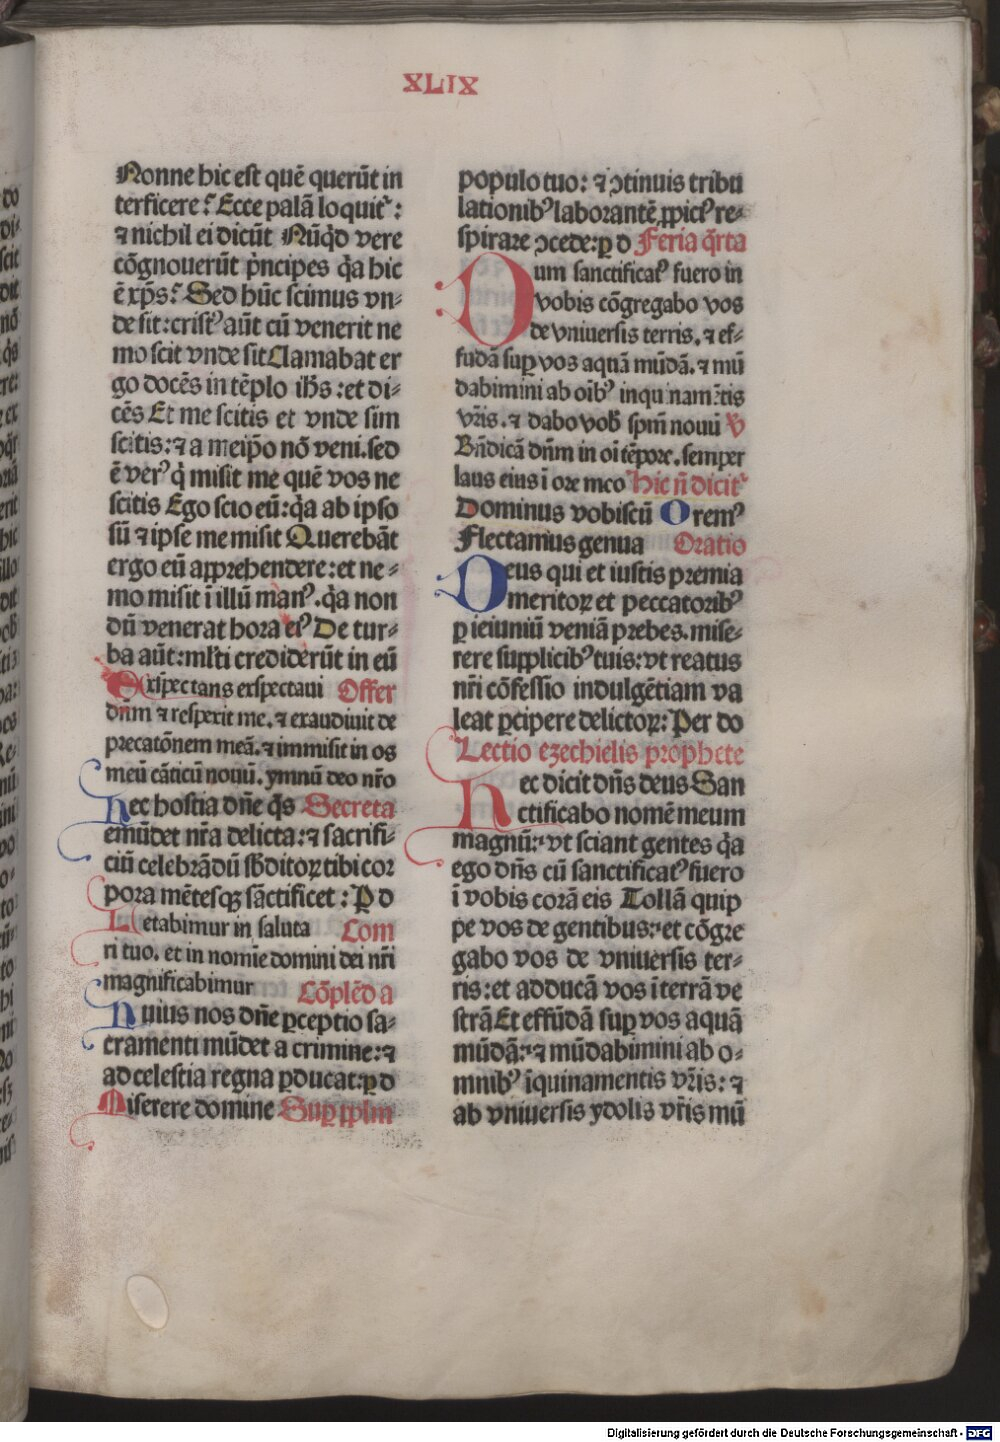 XLIX
Nonne hic est quē querūt in
terficere? Ecce palā loquit᷑:
⁊ nichil ei dicūt Nūq̇d vere
cōgnouerūt p̓ncipes q̇a hic
ē xp̄s? Sed hūc scimus vn-
de sit: crist⁹ aūt cū venerit ne
mo scit vnde sit Clamabat er
go docēs in tēplo ih̄s: et di-
cēs Et me scitis et vnde sim
scitis: ⁊ a meip̄o nō veni. sed
ē ver⁹ q̇ misit me quē vos ne
scitis Ego scio eū: q̇a ab ipso
sū ⁊ ipse me misit Querebāt
ergo eū apprehendere: et ne-
mo misit ī illū man⁹. q̇a non
dū venerat hora ei⁹ De tur-
ba aūt: ml̓ti crediderūt in eū
Exspectans exspectaui Offer
dn̄m ⁊ respexit me. ⁊ exaudiuit de
precatōnem meā. ⁊ immisit in os
meū cāticū nouū. ymnū deo nr̄o
Hec hostia dn̄e q̄s Secreta
emūdet nr̄a delicta: ⁊ sacrifi-
ciū celebrādū sb̄ditoꝝ tibi cor
pora mētesqꝫ sāctificet: P d
Letabimur in saluta Com
ri tuo. et in nomīe domini dei nr̄i
magnificabimur Cōplēda
Huius nos dn̄e ꝑceptio sa-
cramenti mūdet a crimine: ⁊
ad celestia regna ꝑducat: ꝑ d
Miserere domine Suꝑ pplm
populo tuo: ⁊ ꝯtinuis tribu
lationib⁹ laborantē ꝓpici⁹ re-
spirare ꝯcede: ꝑ d Feria q̄rta
Dum sanctificat⁹ fuero in
vobis cōgregabo vos
de vniuersis terris. ⁊ ef-
fudā suꝑ vos aquā mūdā. ⁊ mū
dabimini ab oīb⁹ inquinam̄tis
vr̄is. ⁊ dabo vob̄ spm̄ nouū V
Bn̄dicā dn̄m in oī tēpore. semper
laus eius ī ore meo Hic n̄ dicit᷑
Dominus vobiscū Orem⁹
Flectamus genua Oratio
Deus qui et iustis premia
meritoꝝ et peccatorib⁹
ꝑ ieiuniū veniā prebes. mise-
rere supplicib⁹ tuis: vt reatus
nr̄i cōfessio indulgētiam va
leat ꝑcipere delictoꝝ: Per do
Lectio ezechielis prophete
Hec dicit dn̄s deus San
ctificabo nomē meum
magnū: vt sciant gentes q̇a
ego dn̄s cū sanctificat⁹ fuero
ī vobis corā eis Tollā quip
pe vos de gentibus: et cōgre
gabo vos de vniuersis ter-
ris: et adducā vos ī terrā ve
strā Et effūdā suꝑ vos aquā
mūdā: ⁊ mūdabimini ab o-
mnib⁹ īquinamentis vr̄is: ⁊
ab vniuersis ydolis vr̄is mū
Digitalisierung gefördert durch die Deutsche Forschungsgemeinschaft - DFG